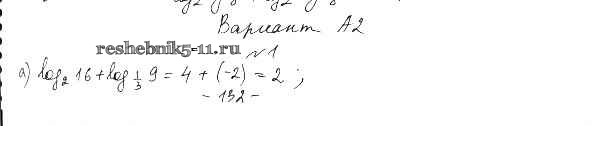 Вариант А2
reshebnik5-11.ru
№1
а) log₂ 16 + log_{1/3} 9 = 4 + (-2) = 2 ;
- 132 -